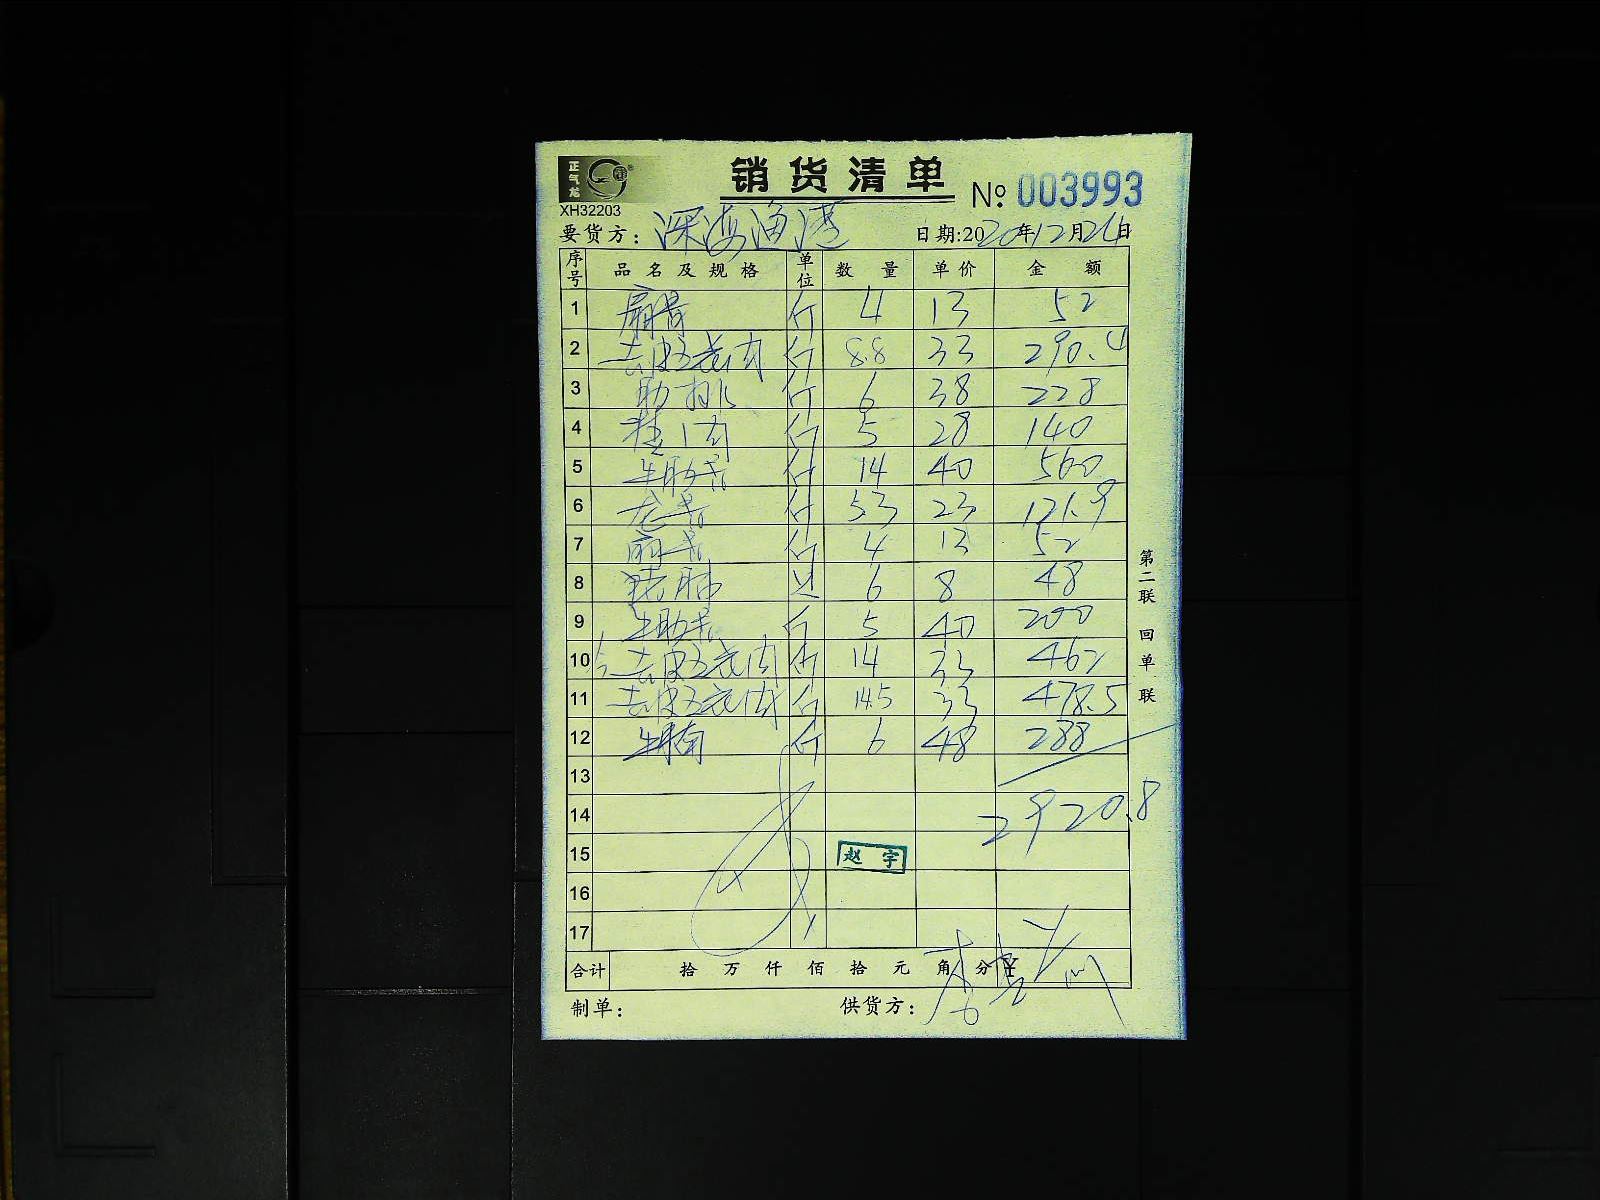 正气龙
XH32203
销货清单 № 003993
要货方：深海渔港 日期:2020年12月24日
序号 品名及规格 单位 数量 单价 金额
1 扇骨 斤 4 13 52
2 去皮五花肉 斤 8.8 33 290.4
3 肋排 斤 6 38 228
4 斤 5 28 140
5 牛肋条 斤 14 40 560
6 龙骨 斤 5.3 23 121.9
7 扇骨 斤 4 13 52
8 猪肺 6 8 48
9 牛肋条 斤 5 40 200
10 去皮五花肉 斤 14 33 462
11 去皮五花肉 斤 14.5 33 478.5
12 牛腩 斤 6 48 288
13
14 2920.8
15 赵宇
16
17
合计 拾 万 仟 佰 拾 元 角 分 ¥
制单： 供货方：
第二联 回单联